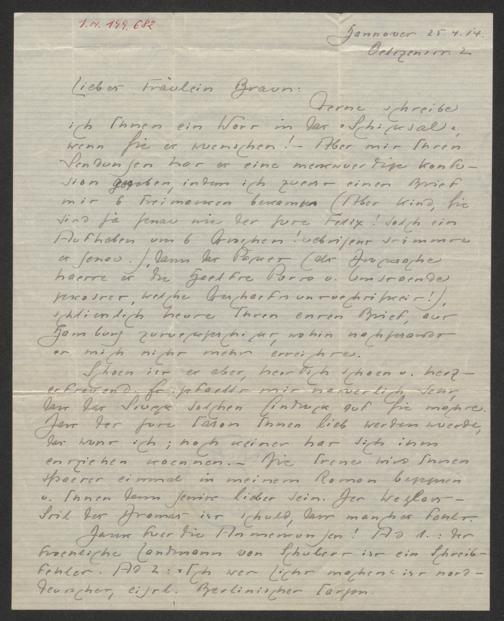 I.N. 199.682
Hannover 25.4.14.
Liebes Fräulein Braun:
Gerne schreibe
ich Ihnen ein Wort in das "Schicksal",
wenn Sie es wuenschen! – Aber mit Ihren
Sendungen hat es eine merkwuerdige Konfu-
sion gegeben, indem ich zuerst einen Brief
mit 6 Freimarken bekomm (Aber Kind, Sie
sind ja genau wie der gute Felix! solch ein
Aufheben um 6 Groschen! uebrigens stimmte
es genau.), dann das Paket (als Drucksache
haette es die Haelfte Porto u. Umstaende
gekostet, welche !),
schliesslich heute Ihren ersten Brief, aus
Hamburg zurueckgeschickt, wohin nachgesandt
er mich nicht mehr erreichte.
Schoen ist es aber, herrlich schoen u. herz-
erfreuend. Es gefaellt mir natuerlich sehr,
dass das Stueck solchen Eindruck auf Sie machte.
Dass der gute Ihnen lieb werden wuerde,
das wusst ich; noch keiner hat sich ihm
entziehen koennen. – Die Irene wird Ihnen
spaeter einmal in meinem Roman begegnen
u. Ihnen dann gewiss lieber sein. Der
Stil des Dramas ist schuld, dass manches fehlt.
Dank fuer die Anmerkungen! Ad 1.: der
froehliche Landmann von Schubert ist ein Schreib-
fehler. Ad 2: "Ich wer Licht machen" ist nord-
deutscher, eigtl. Berlinischer Jargon.